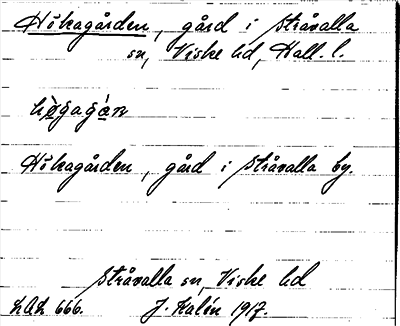 Hökagården, gård i Stråvalla
sn, Viske hd, Hall. l.
hø̀gagá̱n
Hökagården, gård i Stråvalla by.
Stråvalla sn, Viske hd
LAL 666. J. Kalén 1917.